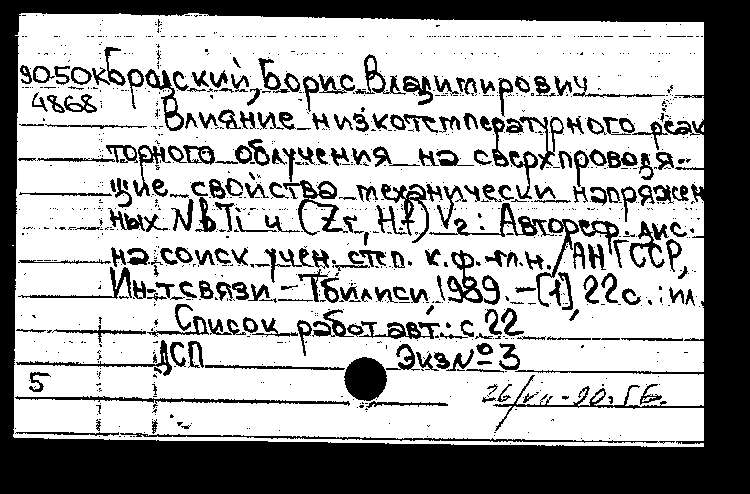 90-50к Бродский, Борис Владимирович
4868
Влияние низкотемпературного реак
торного облучения на сверхпроводя-
щие свойства механически напряжен
ных NbTi и (Zr, Hf)V2: Автореф. дис.
на соиск учен. степ. к.ф.-м.н. / АН ГССР,
Ин-т связи - Тбилиси, 1989. - [1], 22 с. : ил.
Список работ авт.: с. 22
ДСП Экз № 3
5
26/VII-90. Г.Б.